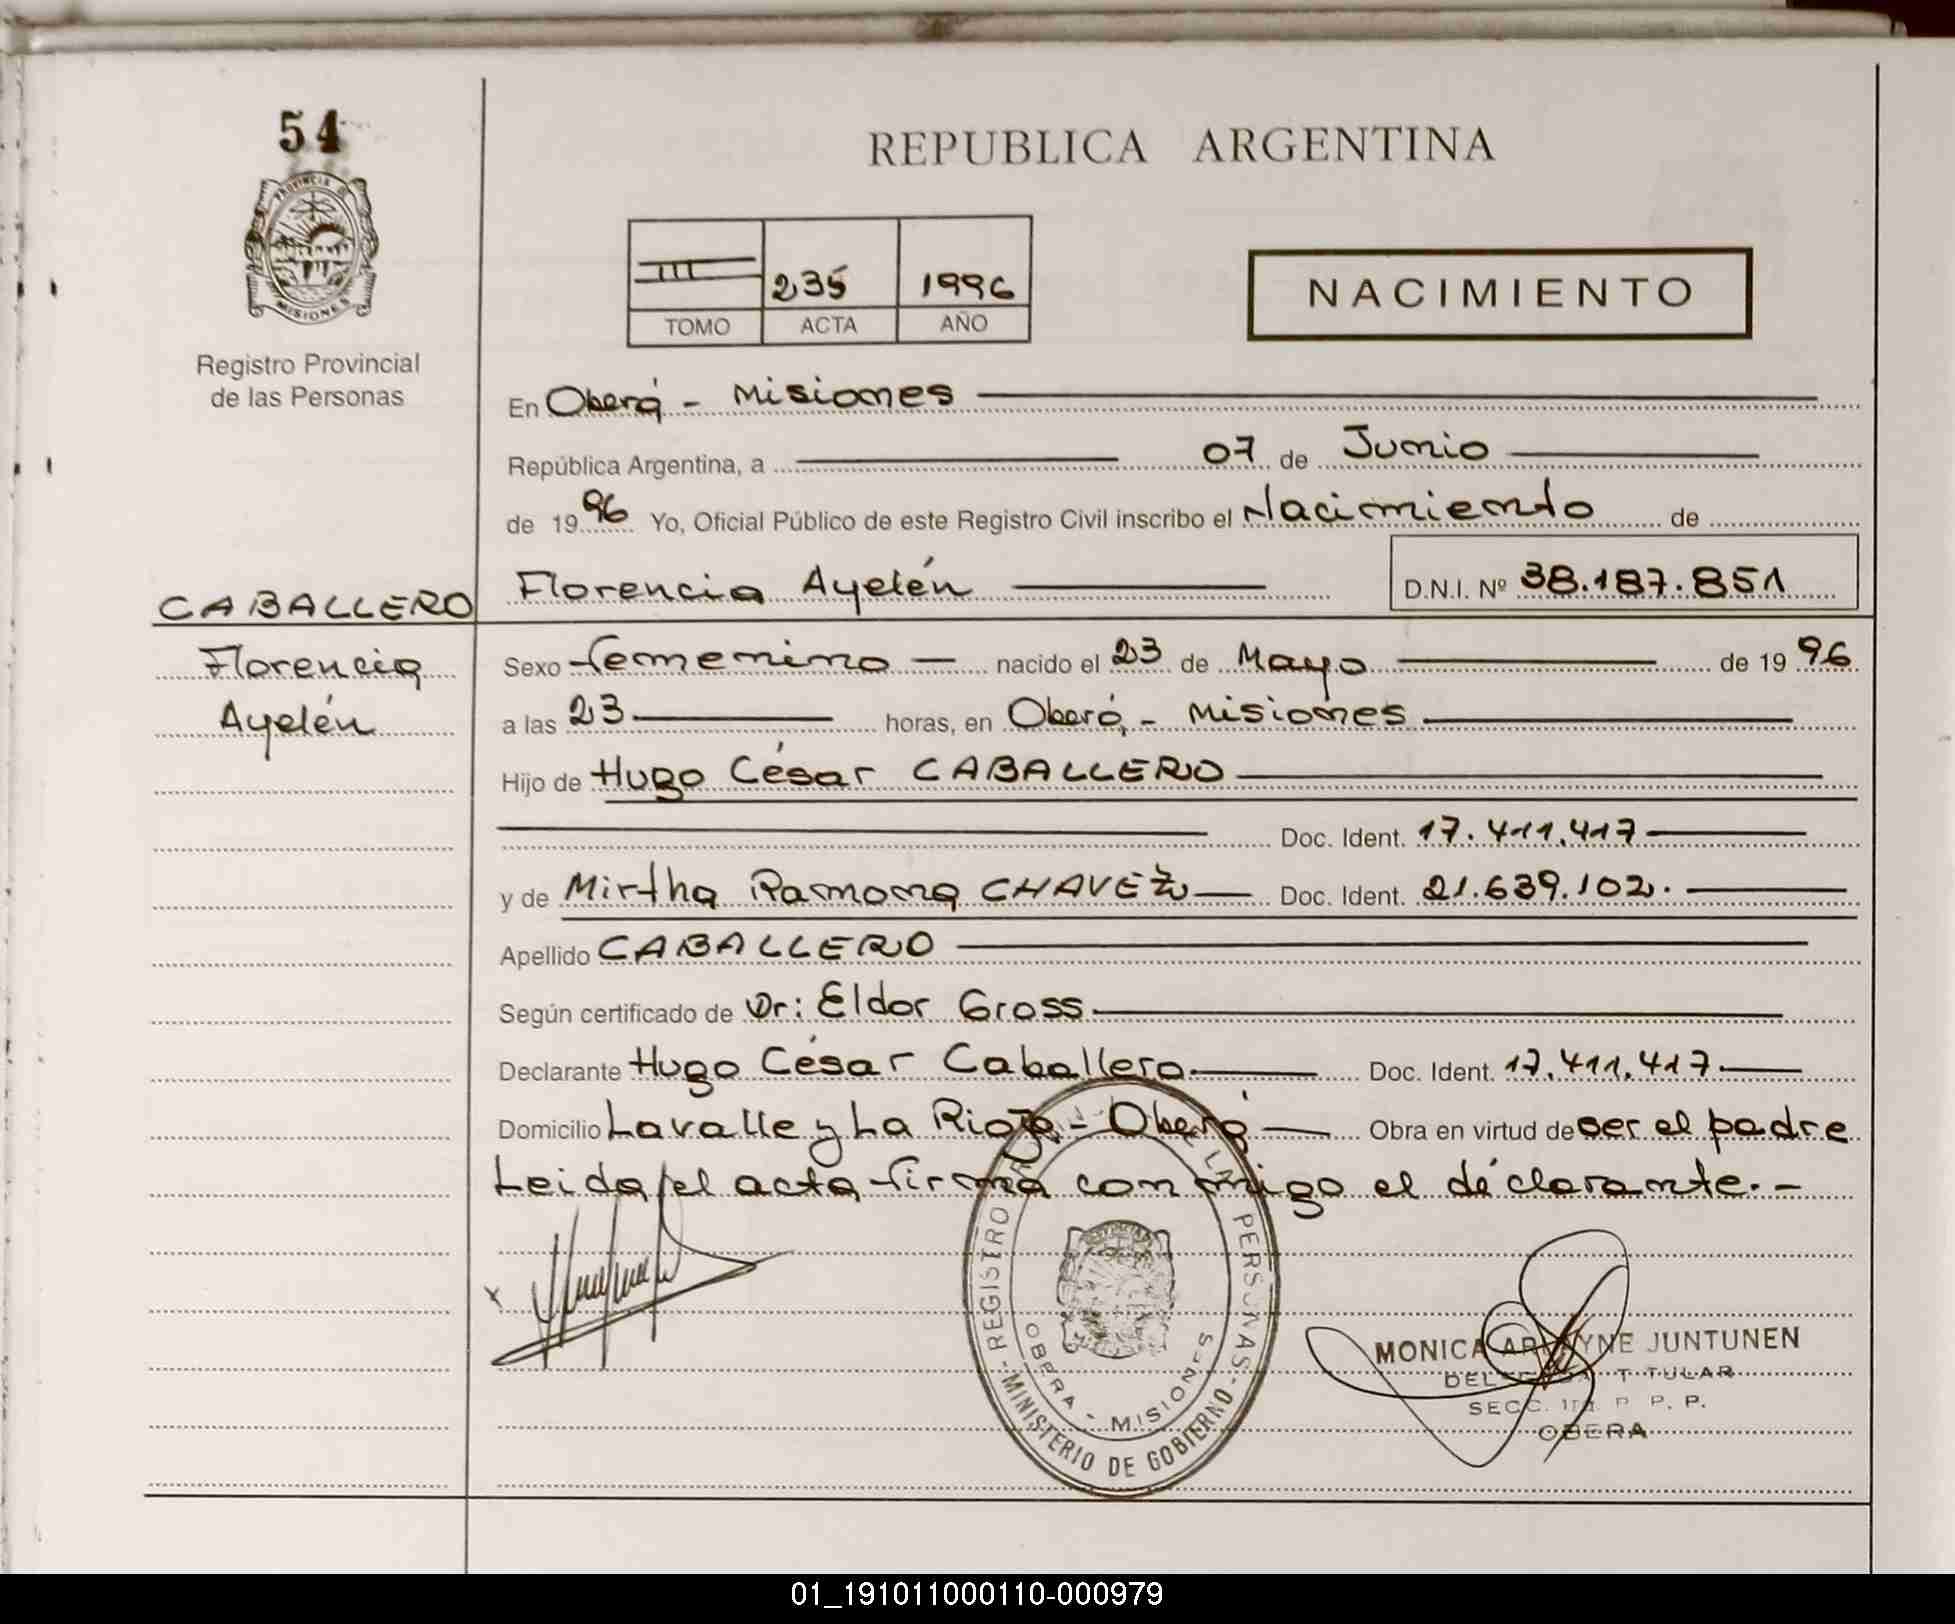 54
REPUBLICA ARGENTINA
PROVINCIA DE
MISIONES
Registro Provincial
de las Personas
III 235 1996
TOMO ACTA AÑO
NACIMIENTO
En Oberá - Misiones
República Argentina, a 07 de Junio
de 1996 Yo, Oficial Público de este Registro Civil inscribo el Nacimiento de
CABALLERO Florencia Ayelén D.N.I. Nº 38.187.851
Florencia Sexo femenino nacido el 23 de Mayo de 1996
Ayelén a las 23 horas, en Oberá - Misiones
Hijo de Hugo César CABALLERO
Doc. Ident. 17.411.417
y de Mirtha Ramona CHAVEZ Doc. Ident. 21.639.102.
Apellido CABALLERO
Según certificado de Dr: Eldor Gross
Declarante Hugo César Caballero Doc. Ident. 17.411.417
Domicilio Lavalle y La Rioja - Oberá Obra en virtud de ser el padre
Leida el acta firma conmigo el declarante.-
x
REGISTRO LAS PERSONAS
MINISTERIO DE GOBIERNO
OBERA - MISIONES
MONICA JUNTUNEN
TITULAR
SECC. 1ra. R. P. P.
OBERA
01_191011000110-000979